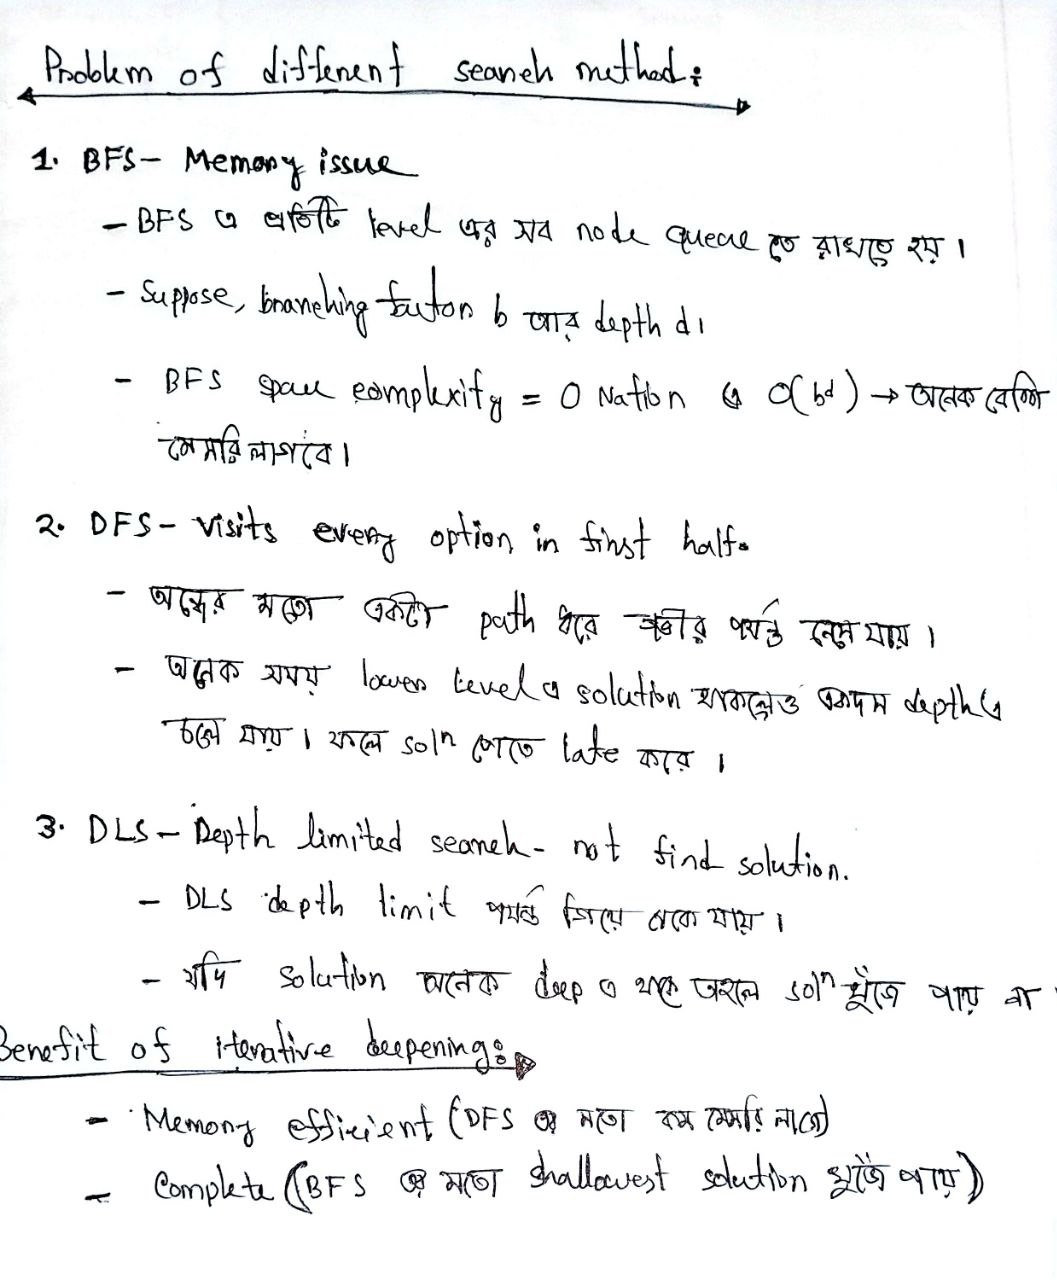 Problem of different search method:
1. BFS - Memory issue
- BFS এ প্রতিটি level এর সব node queue তে রাখতে হয়।
- Suppose, branching factor b আর depth d।
- BFS space complexity = O Nation এ O(b^d) → অনেক বেশি
মেমরি লাগবে।
2. DFS - visits every option in first half.
- অন্ধের মতো একটা path ধরে গভীর পর্যন্ত নেমে যায়।
- অনেক সময় lower level এ solution থাকলেও একদম depth এ
চলে যায়। ফলে solⁿ পেতে late করে।
3. DLS - Depth limited search - not find solution.
- DLS depth limit পর্যন্ত গিয়ে থেকে যায়।
- যদি solution অনেক deep এ থাকে তাহলে solⁿ খুঁজে পায় না
Benefit of iterative deepening:
- Memory efficient (DFS এর মতো কম মেমরি লাগে)
- Complete (BFS এর মতো shallowest solution খুঁজে পায়)